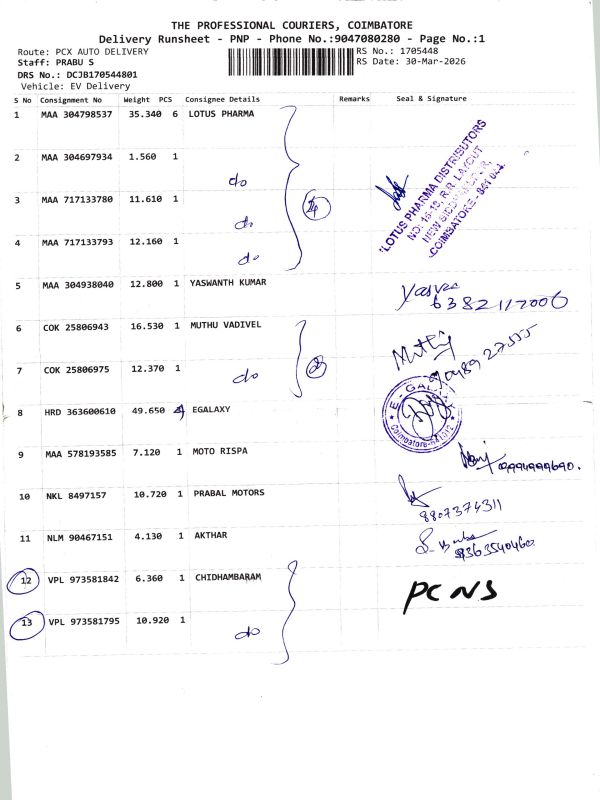 THE PROFESSIONAL COURIERS, COIMBATORE
Delivery Runsheet - PNP - Phone No.:9047080280 - Page No.:1
Route: PCX AUTO DELIVERY
RS No.: 1705448
Staff: PRABU S
RS Date: 30-Mar-2026
DRS No.: DCJB170544801
Vehicle: EV Delivery
S No Consignment No Weight PCS Consignee Details Remarks Seal & Signature
1 MAA 304798537 35.340 6 LOTUS PHARMA
2 MAA 304697934 1.560 1
do
3 MAA 717133780 11.610 1
do
4 MAA 717133793 12.160 1
do
LOTUS PHARMA DISTRIBUTORS
COIMBATORE - 641
5 MAA 304938040 12.800 1 YASWANTH KUMAR
6382117006
6 COK 25806943 16.530 1 MUTHU VADIVEL
7 COK 25806975 12.370 1
do
8 HRD 363600610 49.650 EGALAXY
9 MAA 578193585 7.120 1 MOTO RISPA
10 NKL 8497157 10.720 1 PRABAL MOTORS
8807374311
11 NLM 90467151 4.130 1 AKTHAR
12 VPL 973581842 6.360 1 CHIDHAMBARAM
PCNS
13 VPL 973581795 10.920 1
do